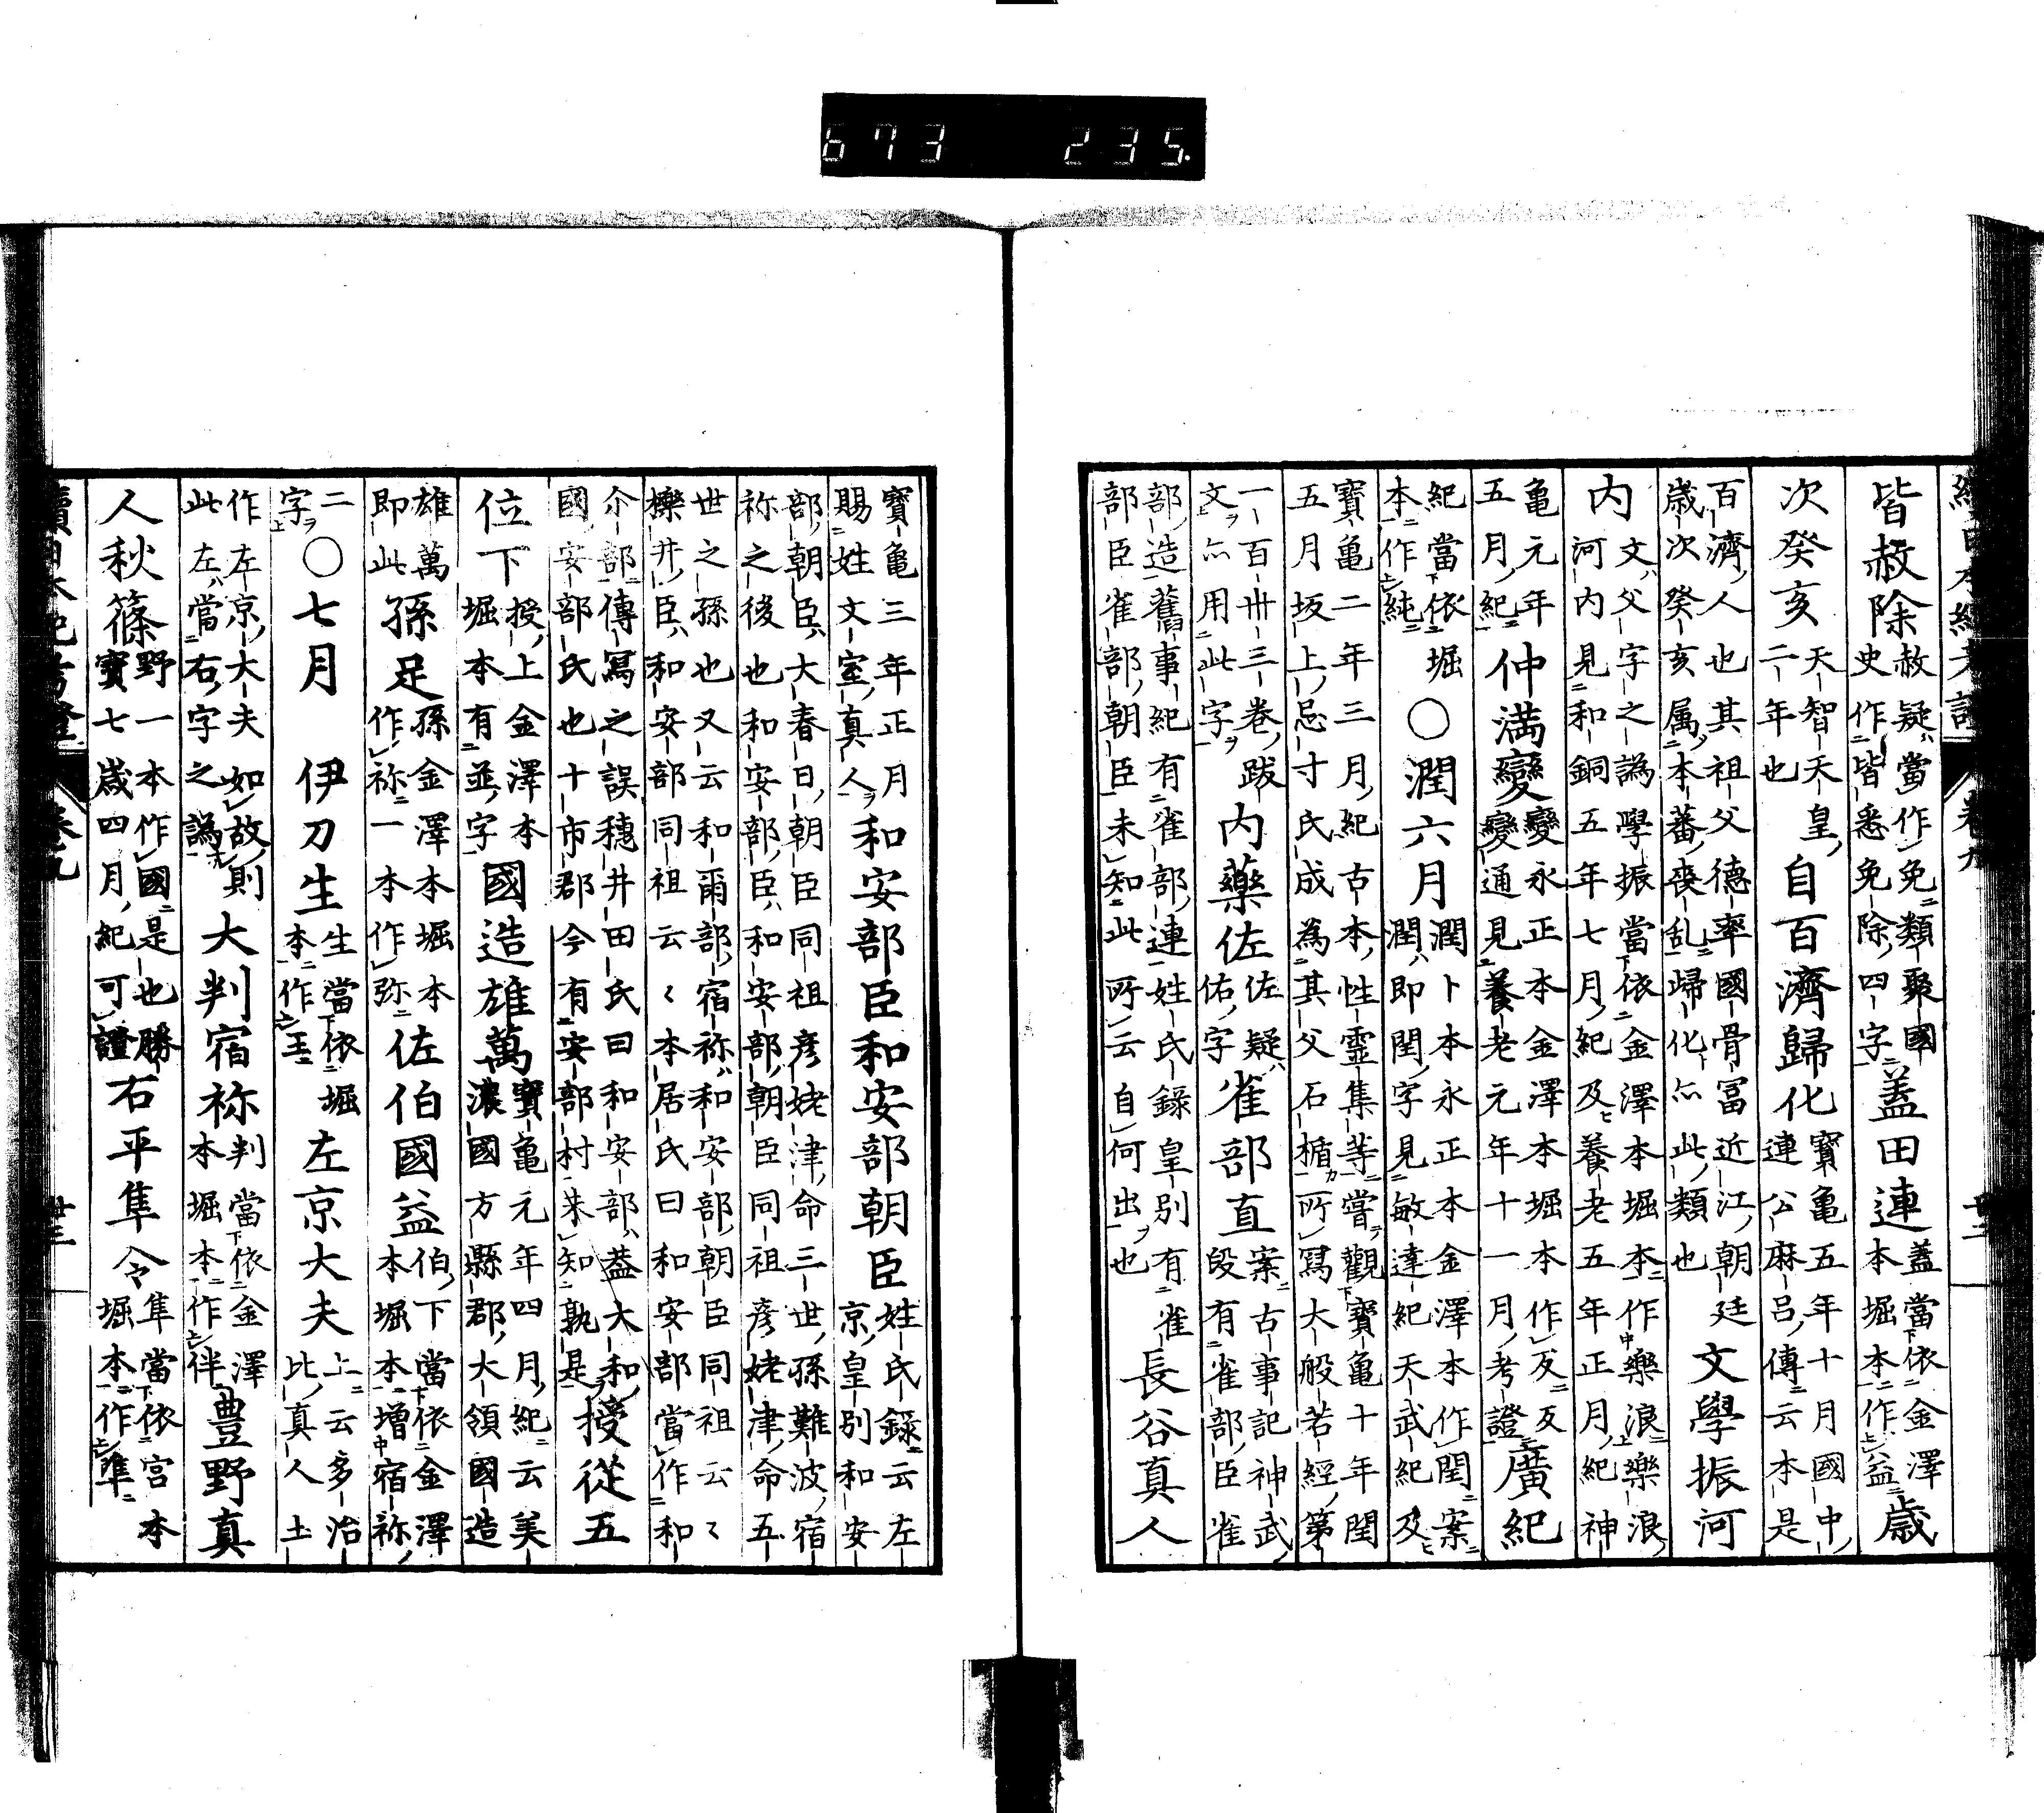 673 235.
皆赦除赦疑當作免類聚國
史作皆悉免除四字盖田連盖當依金澤
本堀本作益歳
次癸亥天智天皇
二年也自百濟歸化寶亀五年十月國中
連公麻呂傳云本是
百濟人也其祖父德率國骨冨近江朝廷
歳次癸亥属本蕃喪乱歸化亦此類也文學振河
内文父字之譌學振當依金澤本堀本作樂浪樂浪
河内見和銅五年七月紀及養老五年正月紀神
亀元年
五月紀仲満變變永正本金澤本堀本作叐叐
變通見養老元年十一月考證廣紀
紀當依堀
本作純〇潤六月潤卜本永正本金澤本作閏案
潤即閏字見敏達紀天武紀及
寶亀二年三月紀古本性霊集等嘗觀寶亀十年閏
五月坂上忌寸氏成為其父石楯所寫大般若經第
一百卅三卷跋
文亦用此字内藥佐佐疑
佑字雀部直案古事記神武
段有雀部臣雀
部造舊事紀有雀部連姓氏錄皇別有雀
部臣雀部朝臣未知此所云自何出也長谷真人
寶亀三年正月
賜姓文室真人和安部臣和安部朝臣姓氏錄云左
京皇別和安
部朝臣大春日朝臣同祖彦姥津命三世孫難波宿
祢之後也和安部臣和安部朝臣同祖彦姥津命五
世之孫也又云和爾部宿祢和安部朝臣同祖云々
櫟井臣和安部同祖云々本居氏曰和安部當作和
尒部傳寫之誤穗井田氏曰和安部盖大和
國安部氏也十市郡今有安部村未知孰是授從五
位下授上金澤本
堀本有並字國造雄萬寶亀元年四月紀云美
濃國方縣郡大領國造
雄萬
即此孫足孫金澤本堀本
作祢一本作弥佐伯國益伯下當依金澤
本堀本増宿祢
二
字〇七月 伊刀生生當依堀
本作王左京大夫上云多治
比真人土
作左京大夫如故則
此左當右字之譌大判宿祢判當依金澤
本堀本作伴豊野真
人秋篠野一本作國是也勝
寶七歳四月紀可證右平隼令隼當依宮本
堀本作準